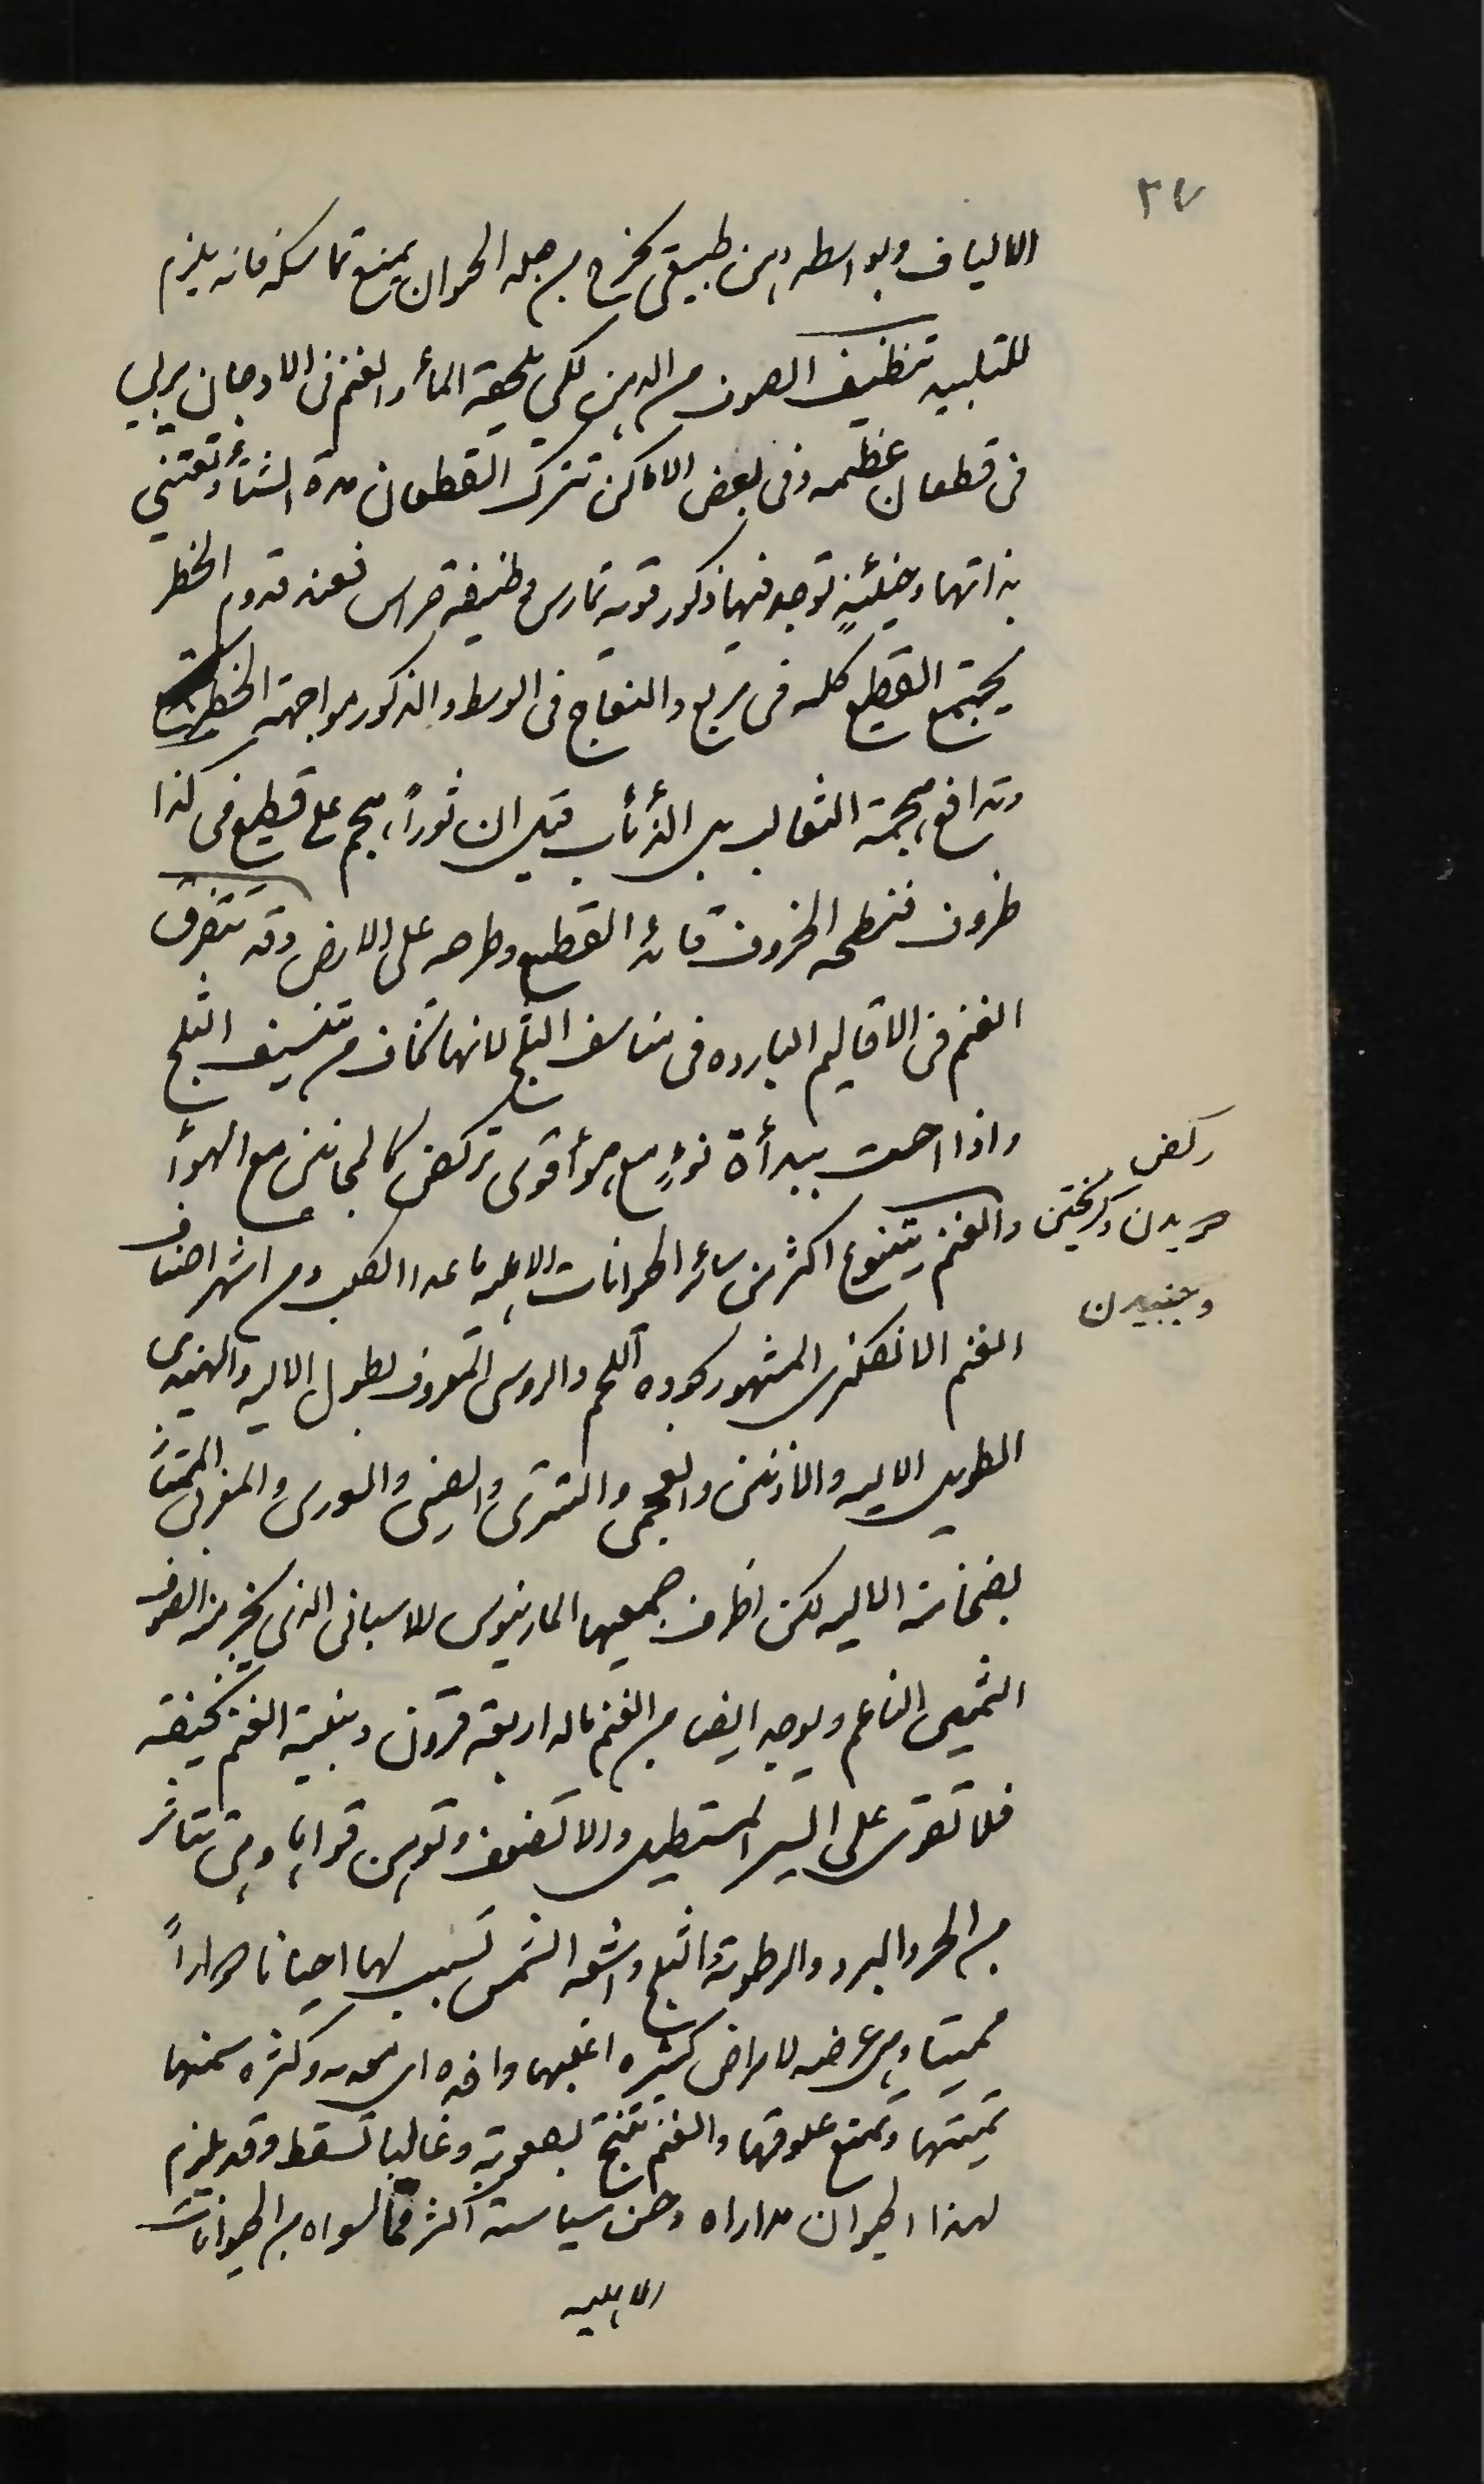 ٢٧
الالياف وبواسطه دهن طبيعي يخرج من جلد الحيوان يمنع تماسكه فانه يلزم
للتلبيد تنظيف الصوف من الدهن لكي يلحقه المأ والغنم فى الاوجان يربي
فى قطعان عظيمه وفى بعض الاماكن تترك القطعان مدة الشتأ وتعتني
بذاتها وحينئذٍ توجد فيها ذكور قويه تمارس وظيفة حراس فعند قدوم الخطر
يجتمع القطيع كله فى مربع والنعاج فى الوسط والذكور مواجهة الخطر
وتدافع هجمة الثعالب بل الذئاب قيل ان ثوراً هجم على قطيع فى كذا
ظروف فنطحه الخروف قائد القطيع وطرحه على الارض وقد تتفرق
الغنم فى الاقاليم البارده فى مناسف الثلج لانها تخاف من تنسيف الثلج
واذا احست ببدأة نوءٍ مع هوأ قوى تركض كالمجانين مع الهوأ
ركض
دويدن وگريختن
وجنبيدن
والغنم يتنوع اكثر من سائر الحيوانات الاهليه ما عدا الكلب ومن اشهر اصناف
الغنم الانكليزى المشهور بجوده اللحم والروسى المعروف بطول الاليه والهندى
الطويل الاليه والاذنين والعجمى والتترى والصينى والسورى والمغربى الممتاز
بضخامة الاليه لكن اظرف جميعها المارينوس الاسبانى الذى يخرج منه الصوف
الثمين الناعم ويوجد ايضا من الغنم ما له اربعة قرون وبنية الغنم نحيفه
فلا تقوى على السير المستطيل والا تضعف وتوهن قواها وهى تتأثر
من الحر والبرد والرطوبة والثلج واشعه الشمس تسبب لها احيانا دواراً
مميتا وهى عرضه لامراض كثيره اغلبها وافده اى معديه وكثره سمنها
تميتها وتمنع علوقها والغنم تنتج بصعوبة وغالبا تسقط وقد يلزم
لهذا الحيوان مداراه وحسن سياسة اكثر مما لسواه من الحيوانات
الاهليه